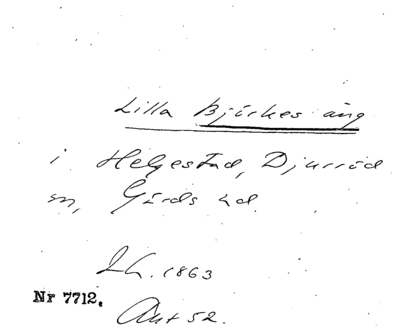 Lilla Björkes äng
i Helgestad, Djurröd
sn, Gärds hd.
Lh. 1863
Nr 7712.
Akt 52.